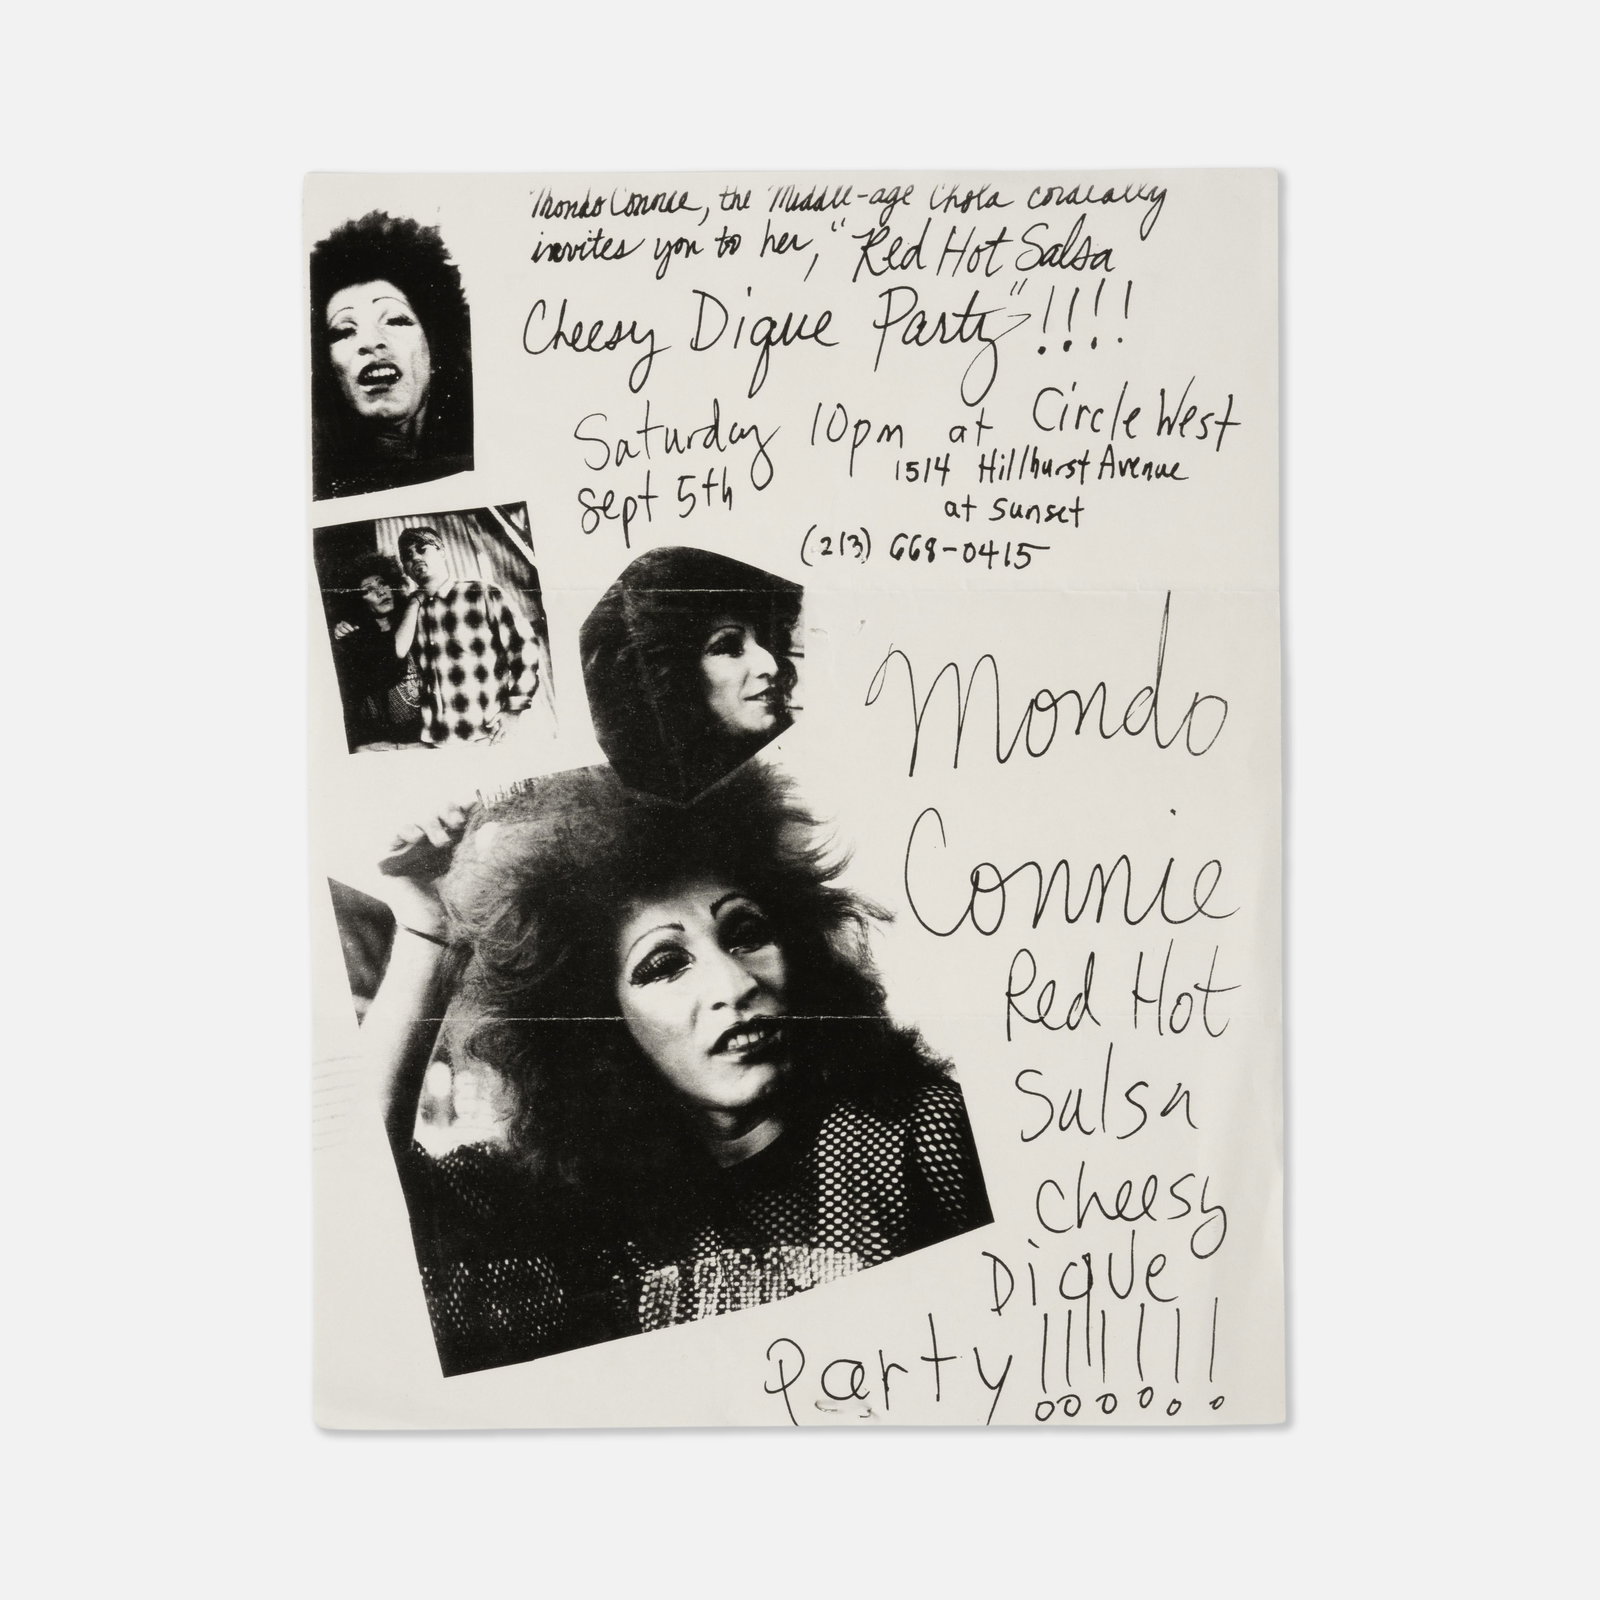 Mondo Connie, the Middle-age Chola cordially
invites you to her, "Red Hot Salsa
Cheesy Dique Party"!!!!
Saturday 10pm at Circle West
Sept 5th 1514 Hillhurst Avenue
at Sunset
(213) 668-0415
Mondo
Connie
Red Hot
Salsa
Cheesy
DiqUe
Party!!!!!!!